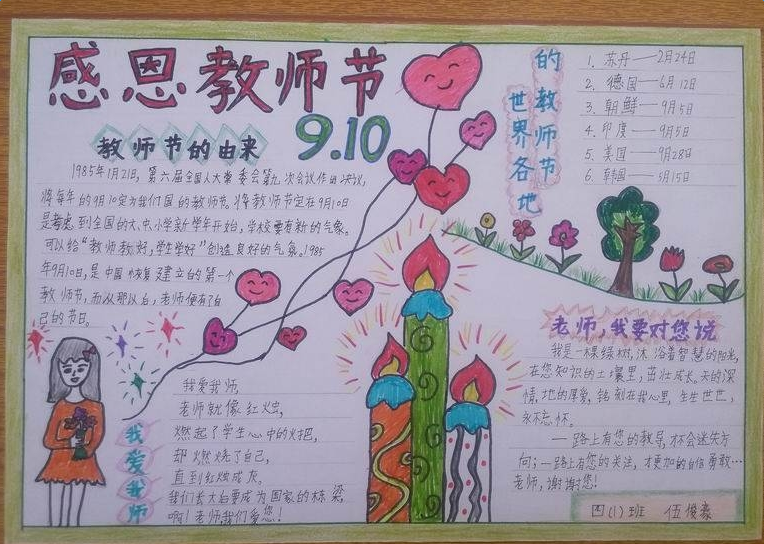 感恩教师节
9.10
教师节的由来
1985年1月21日，第六届全国人大常委会第九次会议作出决议，
将每年的9月10定为我们国的教师节。将教师节定在9月10日
是考虑到全国的大、中、小学新学年开始，学校要有新的气象。
可以给"教师教好，学生学好"创造良好的气氛。1985
年9月10日，是中国恢复建立的第一个
教师节，而从那以后，老师便有了自
己的节日。
世界各地
的教师节
1. 苏丹——2月24日
2. 德国——6月12日
3. 朝鲜——9月5日
4. 印度——9月5日
5. 美国——9月28日
6. 韩国——5月15日
我爱我师
我爱我师，
老师就像红烛，
燃起了学生心中的火把，
却燃烧了自己，
直到红烛成灰，
我们长大后要成为国家的栋梁，
啊！老师我们爱您！
老师，我要对您说
我是一棵绿树，沐浴着智慧的阳光，
在您知识的土壤里，茁壮成长。天的深
情，地的厚爱，铭刻在我心里，生生世世，
永不忘怀。
一路上有您的教导，才不会迷失方
向；一路上有您的关注，才更加的自信勇敢…
老师，谢谢您！
四(1)班 伍俊豪